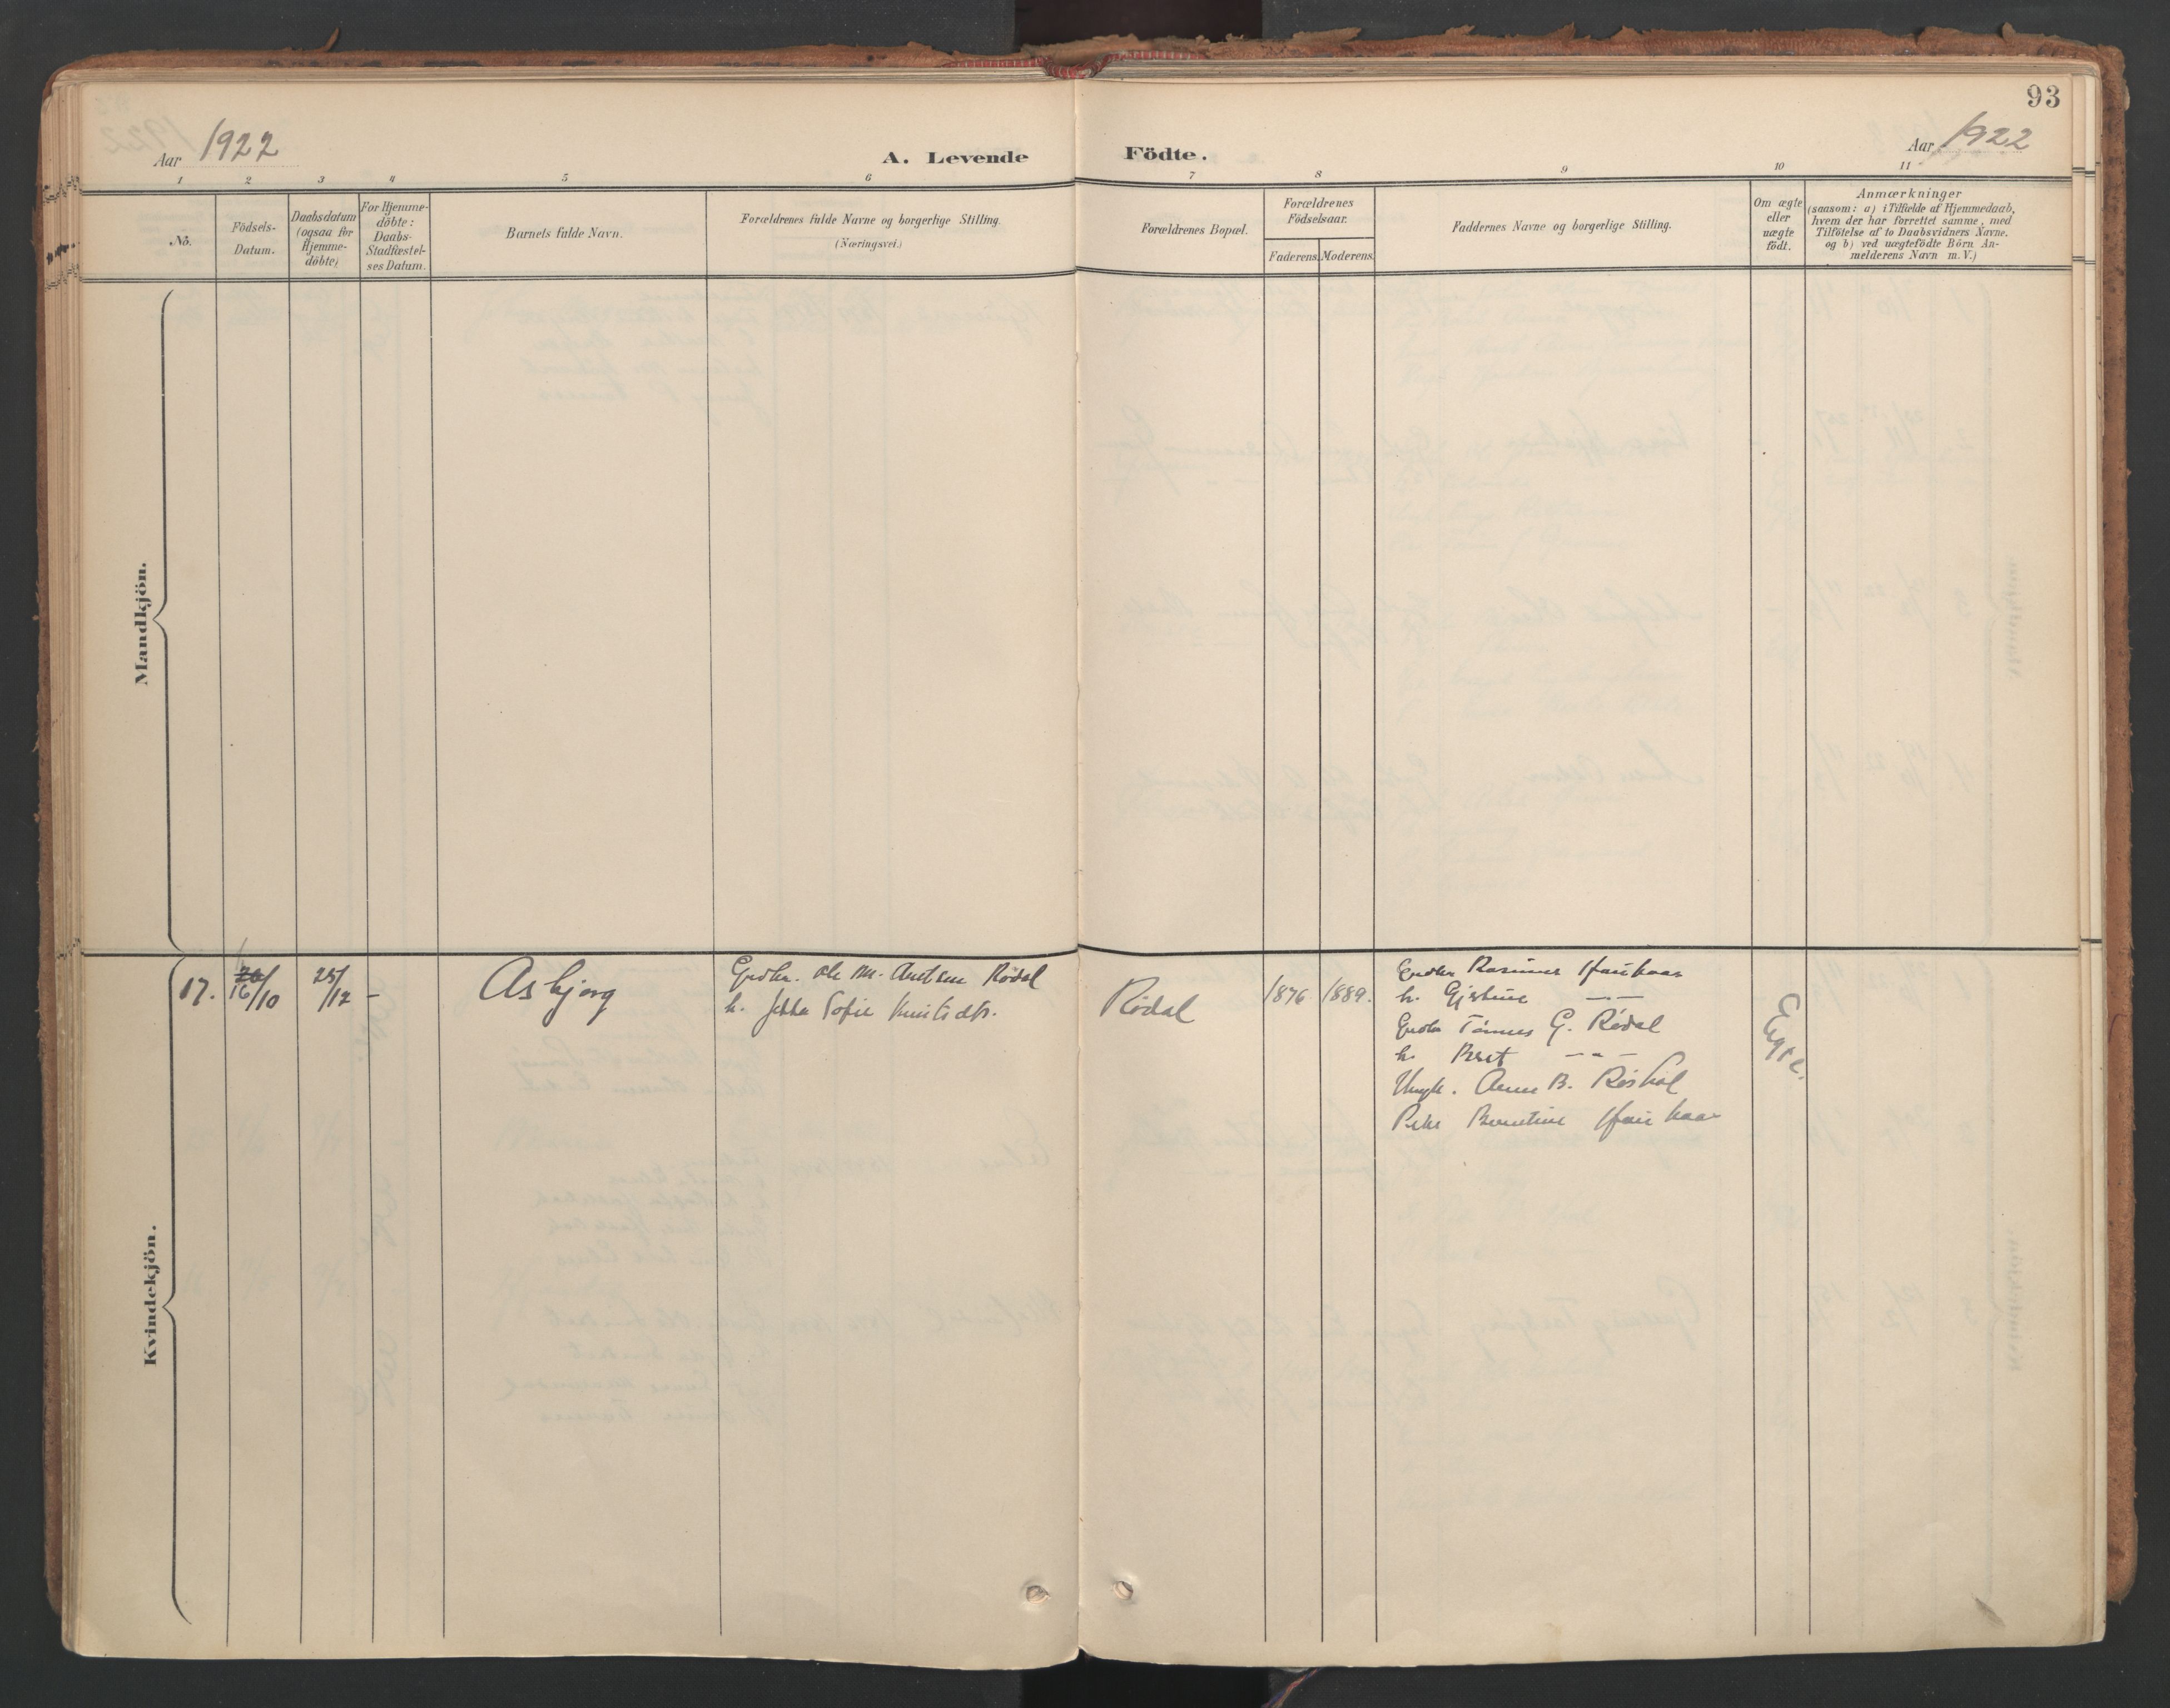 93
Aar 1922
A. Levende Födte.
Aar 1922
1 2 3 4 5 6 7 8 9 10 11
No.
Födsels-
Datum.
Daabsdatum
(ogsaa for
Hjemme-
döbte)
For Hjemme-
döbte:
Daabs-
Stadfæstel-
ses Datum.
Barnets fulde Navn.
Forældrenes fulde Navne og borgerlige Stilling.
(Næringsvei.)
Forældrenes Bopæl.
Forældrenes
Födselsaar.
Faderens. Moderens.
Faddernes Navne og borgerlige Stilling.
Om ægte
eller
uægte
födt.
Anmærkninger
(saasom: a) i Tilfælde af Hjemmedaab,
hvem der har forrettet samme, med
Tilföielse af to Daabsvidners Navne.
og b) ved uægtefödte Börn An-
melderens Navn m.V.)
Mandkjön.
Kvindekjön.
17. 16/10 25/12 -
Asbjørg
Grdbr. Ole M. Knutsen Rødal
h. Sofie Knutsdtr.
Rødal
1876 1889.
Grdbr Rasmus
h. Gjertine -"-
Grdbr Tønnes G. Rødal
h. Beret -"-
Ungk. B.
Pike Berntine
Egte.